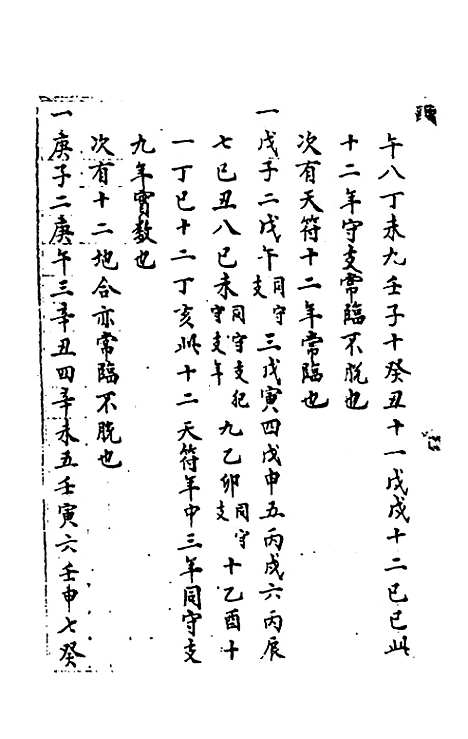 午八丁未九壬子十癸丑十一戊戌十二己巳此
十二年守支常臨不脱也
次有天符十二年常臨也
一戊子二戊午同守支三戊寅四戊申五丙戌六丙辰
七己丑八己未同守支紀守支年九乙卯同守支十乙酉十
一丁巳十二丁亥此十二天符年中三年同守支
九年實數也
次有十二地合亦常臨不脱也
一庚子二庚午三辛丑四辛未五壬寅六壬申七癸